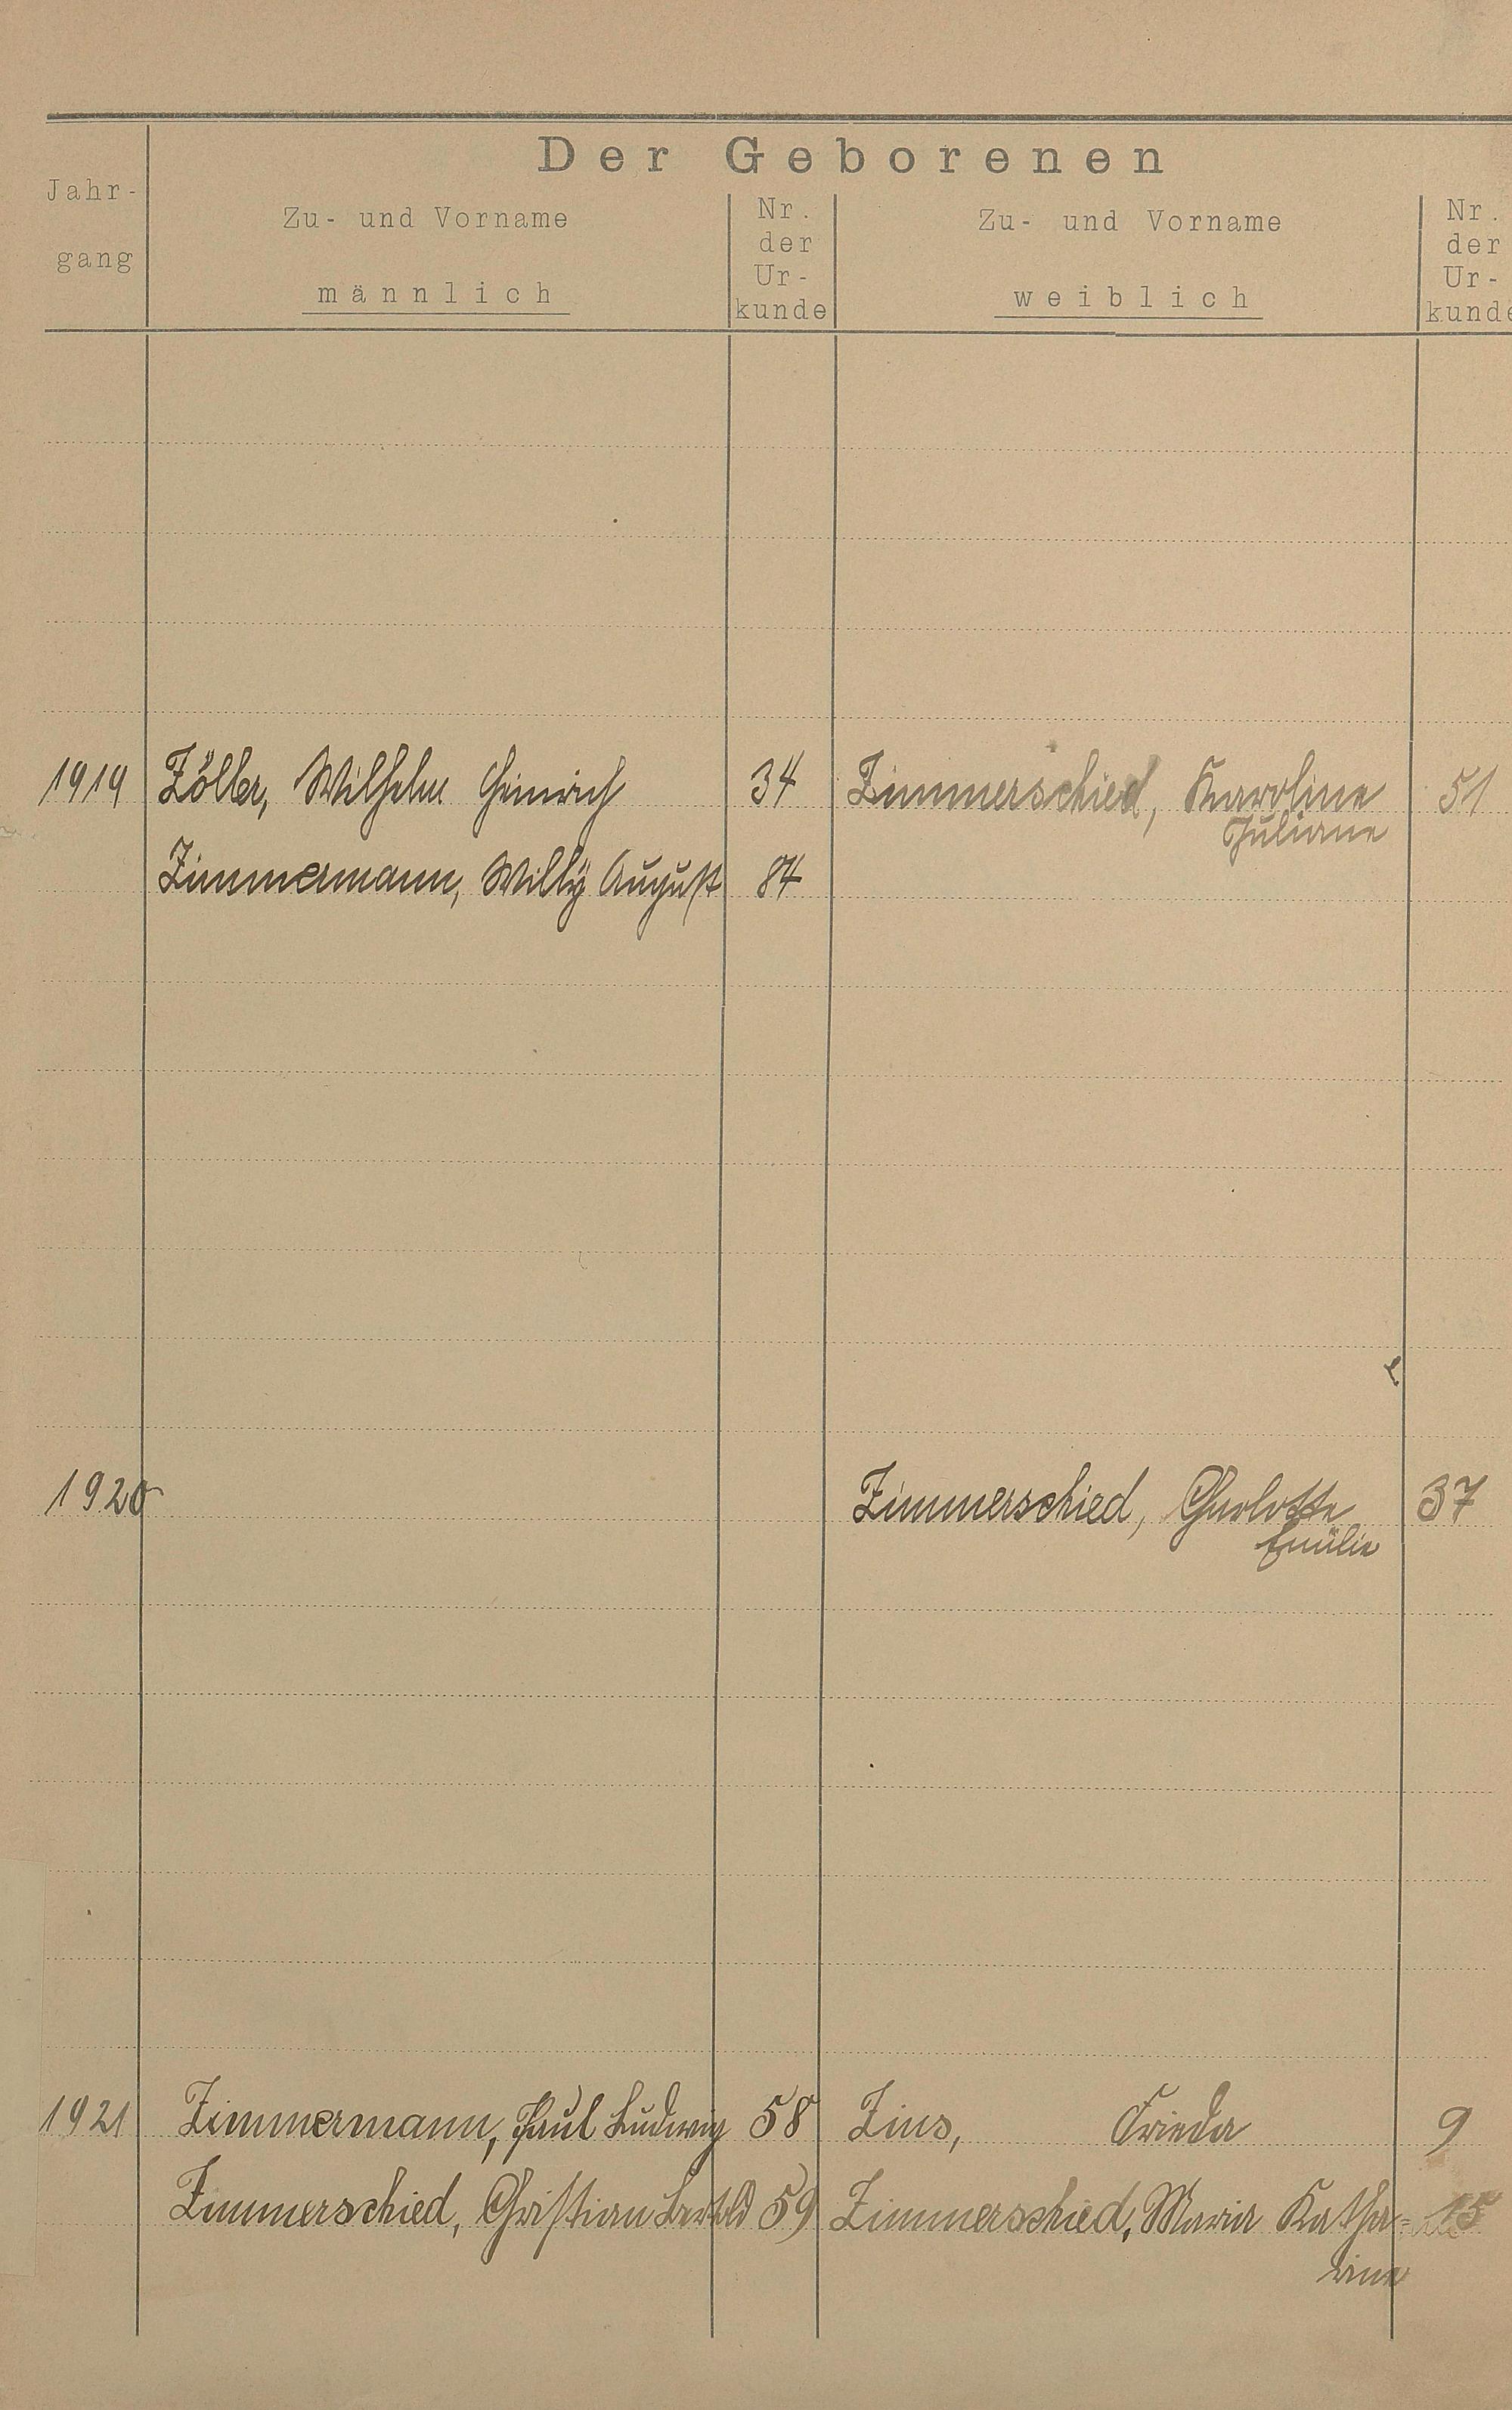 Der Geborenen
Jahr-
gang
Zu- und Vorname
männlich
Nr.
der
Ur-
kunde
Zu- und Vorname
weiblich
Nr.
der
Ur-
kunde
1919 Zöller, Wilhelm Heinrich 34 Zimmerschied, Karoline 51
Juliane
Zimmermann, Willy August 84
1920 Zimmerschied, Charlotte 37
Emilie
1921 Zimmermann, Paul Ludwig 58 Zins, Frieda 9
Zimmerschied, Christian Bertold 59 Zimmerschied, Maria Katha- 15
rine